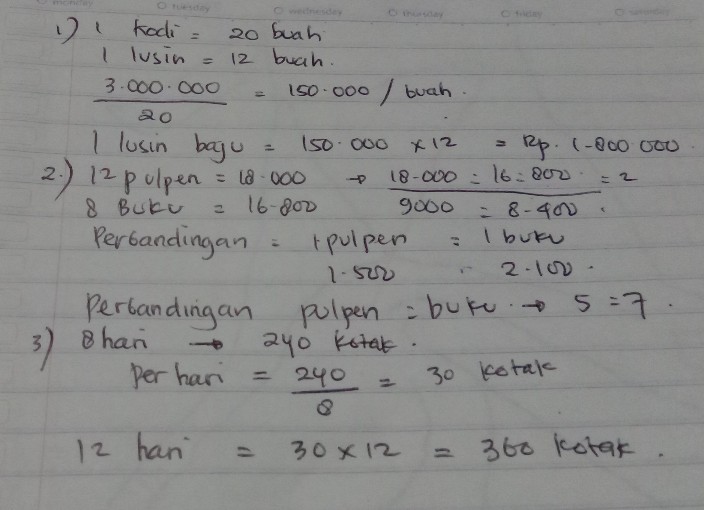 monday tuesday wednesday thursday friday saturday
1) 1 kodi = 20 buah
1 lusin = 12 buah.
3.000.000 = 150.000 / buah.
20
1 lusin baju = 150.000 x 12 = Rp. 1.800.000.
2.) 12 pulpen = 18.000 → 18.000 = 16.800 = 2
8 Buku = 16.800 9000 = 8.400.
Perbandingan = 1 pulpen = 1 buku
1.500 : 2.100.
Perbandingan pulpen = buku. → 5 = 7.
3) 8 hari → 240 kotak.
Per hari = 240 = 30 kotak
8
12 hari = 30 x 12 = 360 kotak.